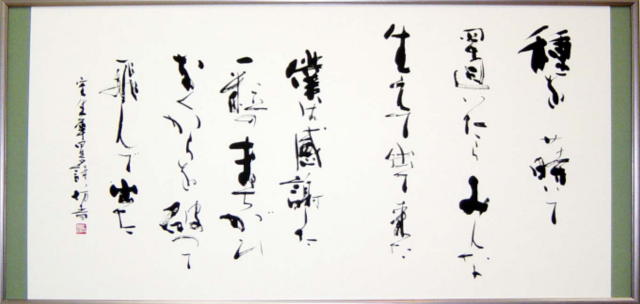 種を蒔いて
週いたらみんな
生えて出て来た
僕は感謝した
一粒のまちがひ
なくからを破つて
飛んで出た
室生犀星詩